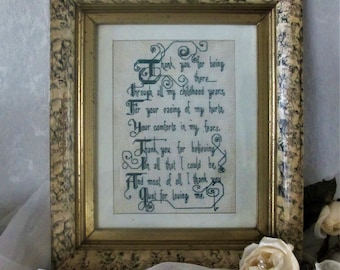 Thank you for being
there
Through all my childhood years,
For your easing of my hurts,
Your comforts in my fears.
Thank you for believing
In all that I could be,
And most of all I thank you
Just for loving me.